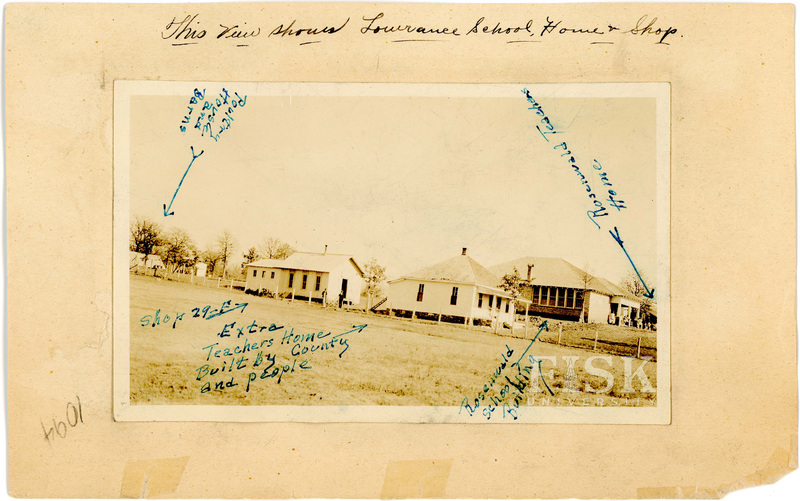 This view shows Lowrance School, Home & Shop.
Poultry
House
and
Barns
Rosenwald Teachers
Home
Shop 29-F
Extra
Teachers Home
Built by County
and people
Rosenwald
School
Building
FISK
UNIVERSITY
1094